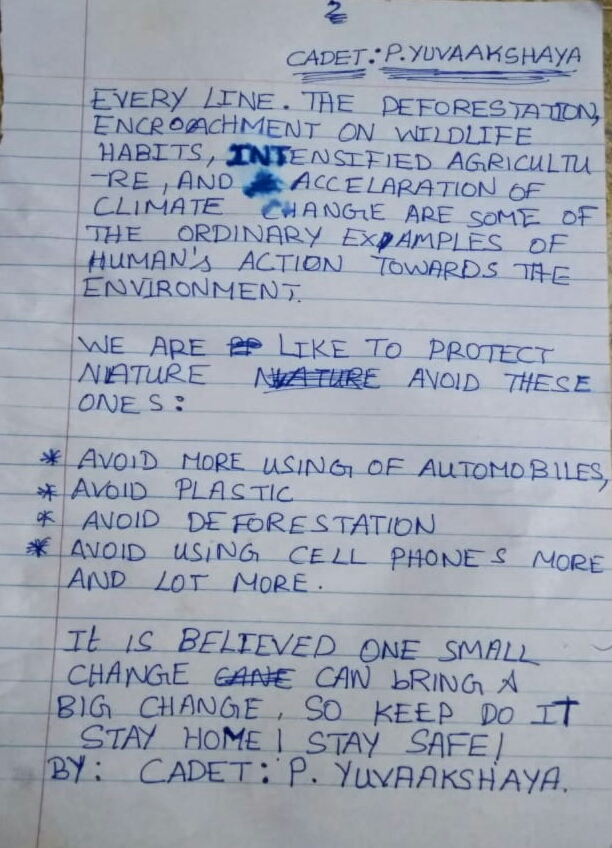 2
CADET: P.YUVAAKSHAYA
EVERY LINE. THE DEFORESTATION,
ENCROACHMENT ON WILDLIFE
HABITS, INTENSIFIED AGRICULTU
-RE, AND ACCELARATION OF
CLIMATE CHANGE ARE SOME OF
THE ORDINARY EXAMPLES OF
HUMAN'S ACTION TOWARDS THE
ENVIRONMENT.
WE ARE LIKE TO PROTECT
NATURE NATURE AVOID THESE
ONES:
* AVOID MORE USING OF AUTOMOBILES,
* AVOID PLASTIC
* AVOID DEFORESTATION
* AVOID USING CELL PHONES MORE
AND LOT MORE.
It IS BELIEVED ONE SMALL
CHANGE CANE CAN bRING A
BIG CHANGE, SO KEEP DO IT
STAY HOME! STAY SAFE!
BY: CADET: P. YUVAAKSHAYA.